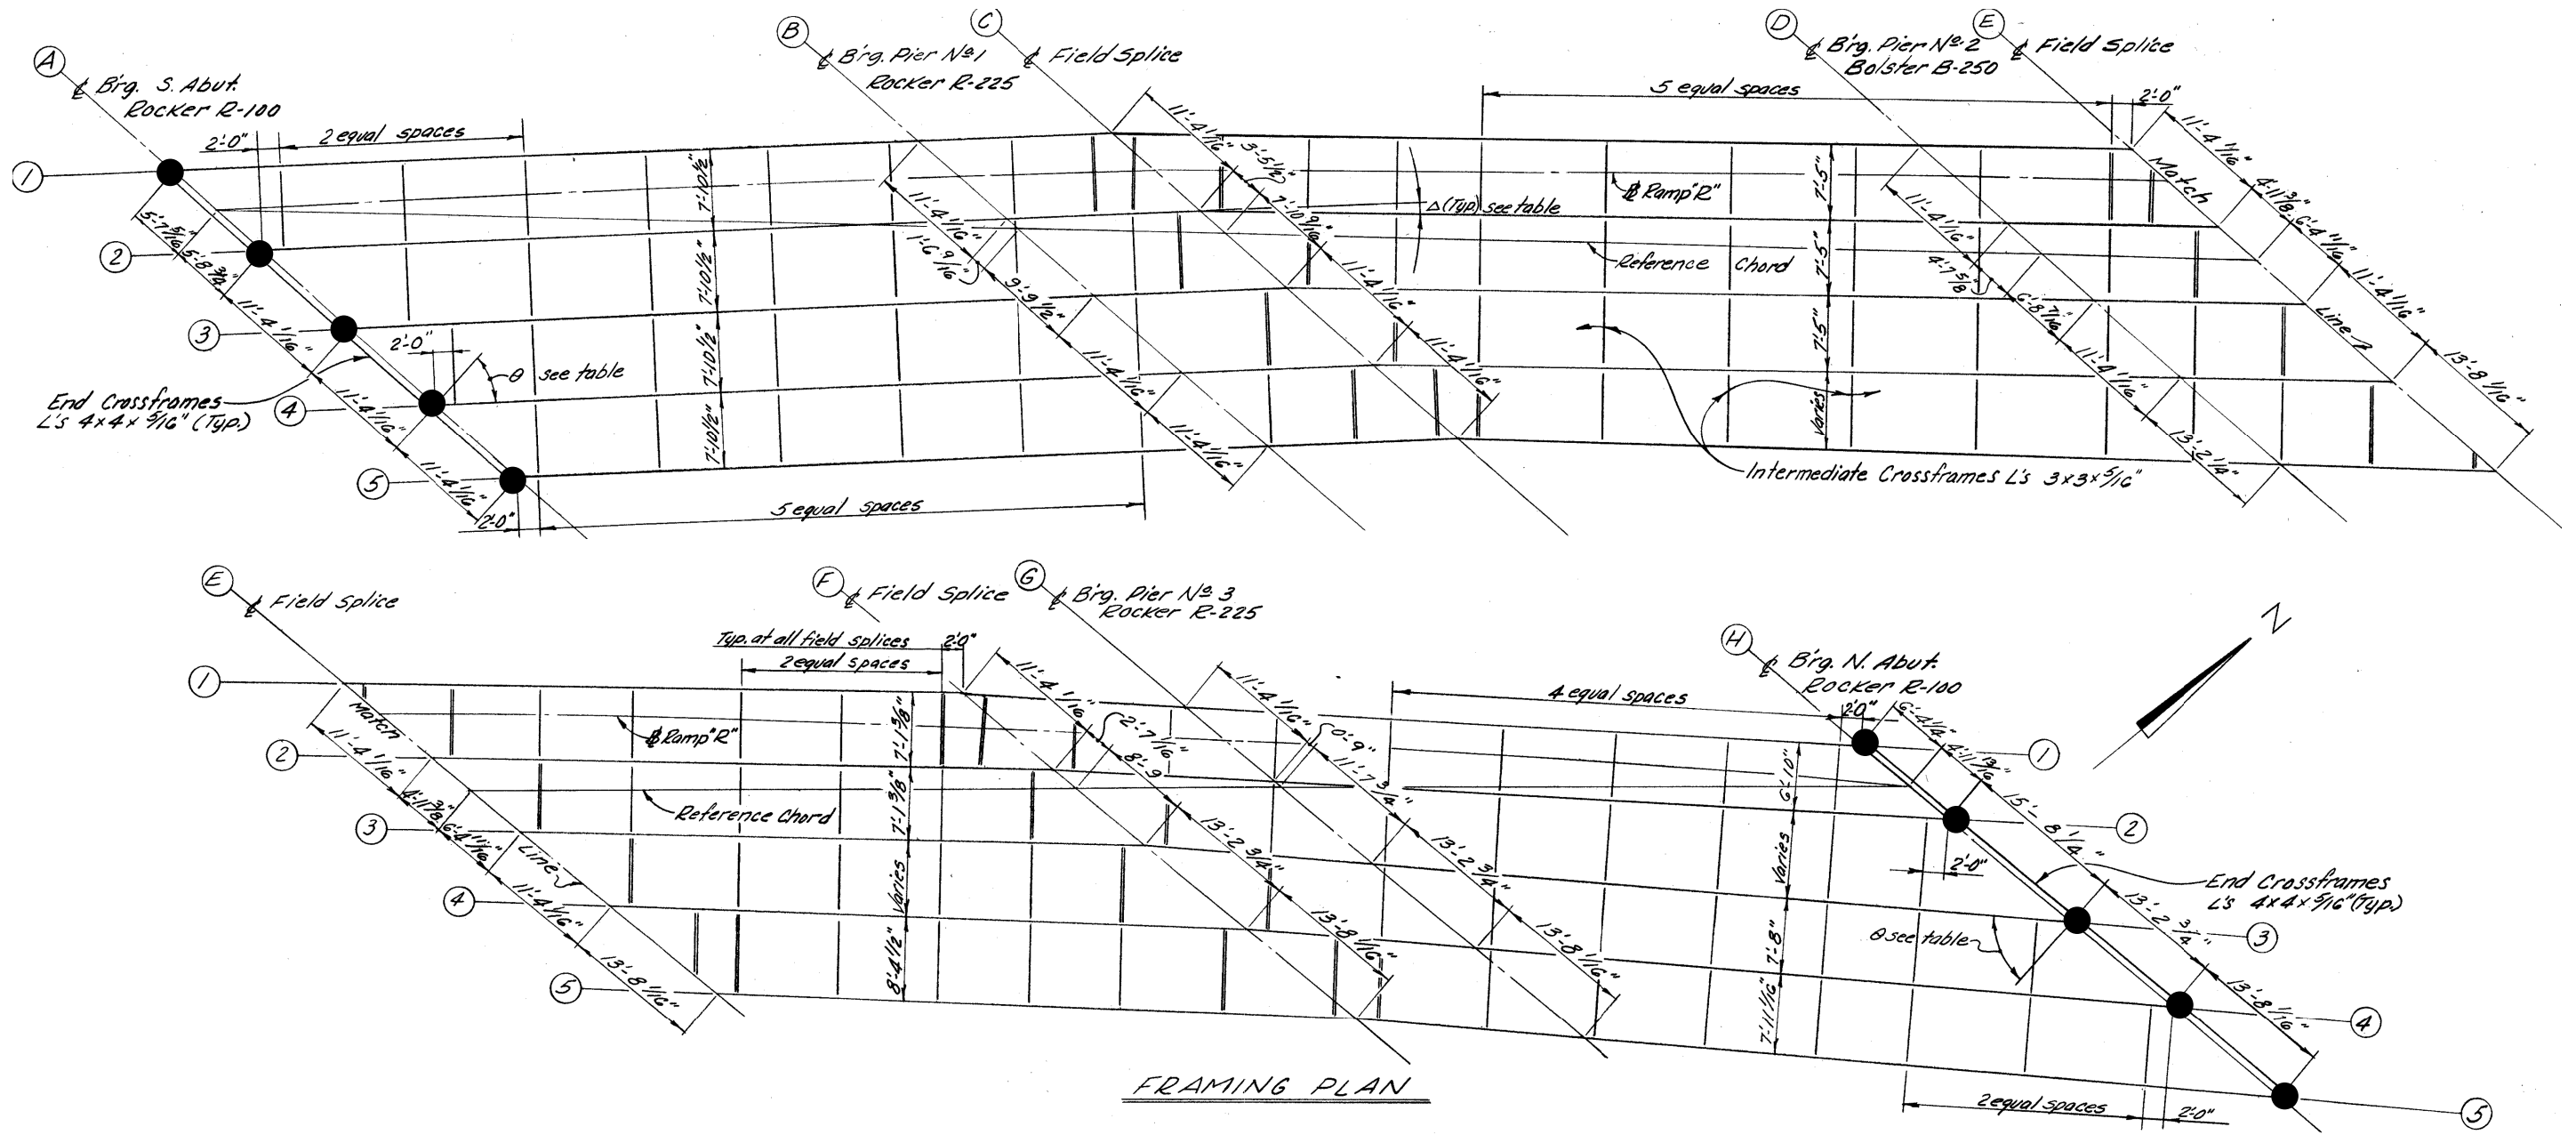 A
℄ Brg. S. Abut.
Rocker R-100
B
℄ Brg. Pier No. 1
Rocker R-225
C
℄ Field Splice
D
℄ Brg. Pier No. 2
Bolster B-250
E
℄ Field Splice
2'-0"
2 equal spaces
5 equal spaces
2'-0"
1
2
3
4
5
5'-7 5/16"
5'-8 3/4"
11'-4 1/16"
11'-4 1/16"
11'-4 1/16"
2'-0"
θ see table
End Crossframes
L's 4x4x 5/16" (Typ.)
2'-0"
5 equal spaces
7'-10 1/2"
7'-10 1/2"
7'-10 1/2"
7'-10 1/2"
11'-4 1/16"
1'-6 9/16"
9'-9 1/2"
11'-4 1/16"
11'-4 1/16"
11'-4 1/16"
3'-5 1/2"
7'-10 9/16"
11'-4 1/16"
11'-4 1/16"
Δ (Typ.) see table
℄ Ramp "R"
Reference Chord
7'-5"
7'-5"
7'-5"
Varies
Intermediate Crossframes L's 3x3x 5/16"
11'-4 1/16"
4'-7 5/8"
6'-8 7/16"
11'-4 1/16"
13'-2 1/4"
Match
Line
11'-4 1/16"
4'-11 3/8"
6'-4 11/16"
11'-4 1/16"
13'-8 1/16"
E
℄ Field Splice
F
℄ Field Splice
G
℄ Brg. Pier No. 3
Rocker R-225
H
℄ Brg. N. Abut.
Rocker R-100
N
Typ. at all field splices
2'-0"
2 equal spaces
4 equal spaces
2'-0"
1
2
3
4
5
Match
Line
11'-4 1/16"
4'-11 3/8"
6'-4 11/16"
11'-4 1/16"
13'-8 1/16"
℄ Ramp "R"
Reference Chord
7'-1 3/8"
7'-1 3/8"
Varies
8'-4 1/2"
11'-4 1/16"
2'-7 1/16"
8'-9
13'-2 3/4"
13'-8 1/16"
11'-4 1/16"
0'-9"
11'-7 3/4"
13'-2 3/4"
13'-8 1/16"
6'-10"
Varies
7'-8"
7'-11 1/16"
6'-4 1/4"
4'-11 13/16"
15'-8 1/4"
13'-2 3/4"
13'-8 1/16"
2'-0"
θ see table
End Crossframes
L's 4x4x 5/16" (Typ.)
1
2
3
4
5
2 equal spaces
2'-0"
FRAMING PLAN